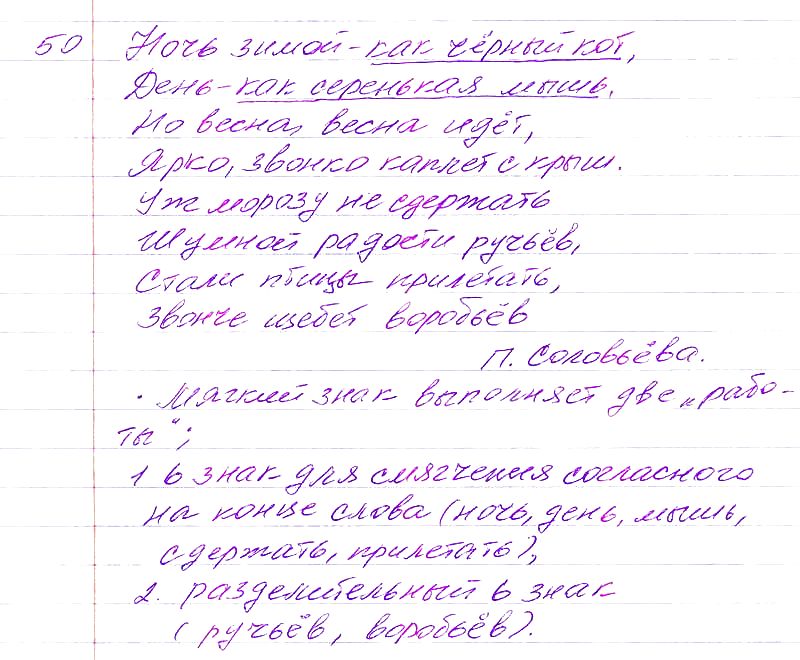 50 Ночь зимой - как чёрный кот,
День - как серенькая мышь.
Но весна, весна идёт,
Ярко, звонко каплет с крыш.
Уж морозу не сдержать
Шумной радости ручьёв,
Стали птицы прилетать,
Звонче щебет воробьёв
П. Соловьёва.
· Мягкий знак выполняет две „рабо-
ты“;
1 ь знак для смягчения согласного
на конце слова (ночь, день, мышь,
сдержать, прилетать),
2. разделительный ь знак
(ручьёв, воробьёв).